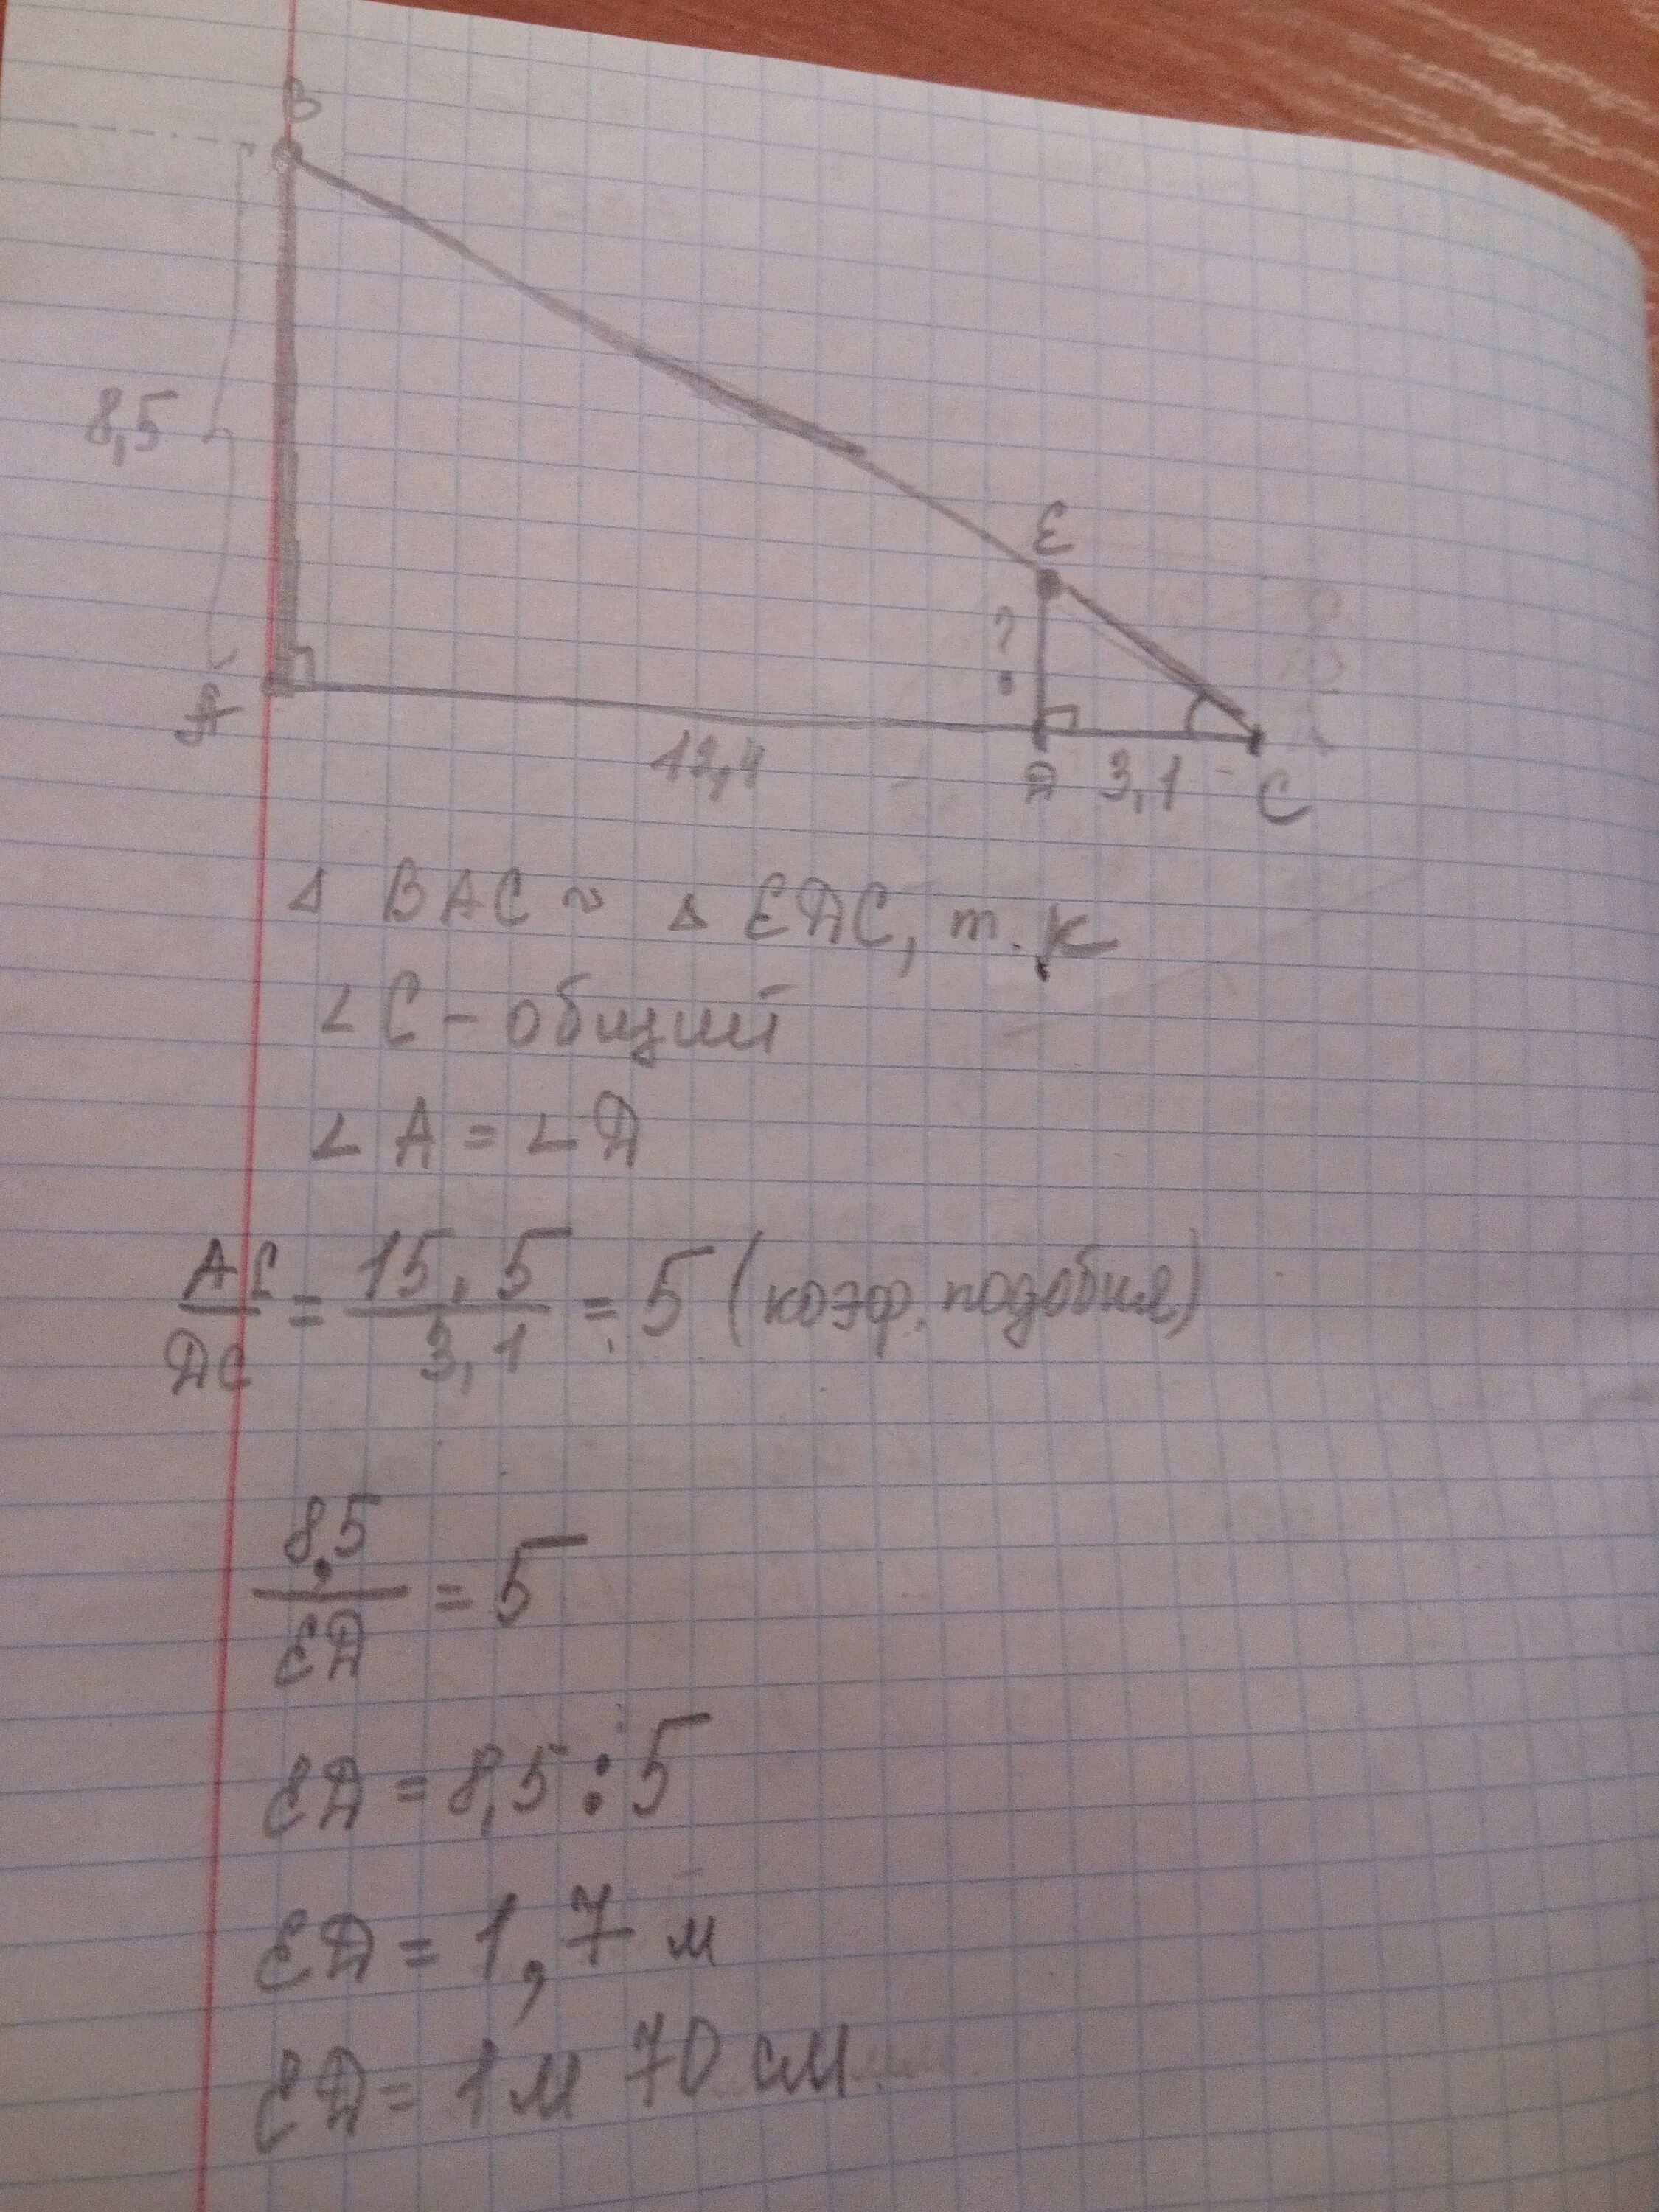 B
8,5
E
?
A
12,4
D
3,1
C
Δ BAC ~ Δ EDC, т.к
∠ C - общий
∠ A = ∠ D
AC/DC = 15,5/3,1 = 5 (коэф. подобия)
8,5/ED = 5
ED = 8,5 : 5
ED = 1,7 м
ED = 1 м 70 см